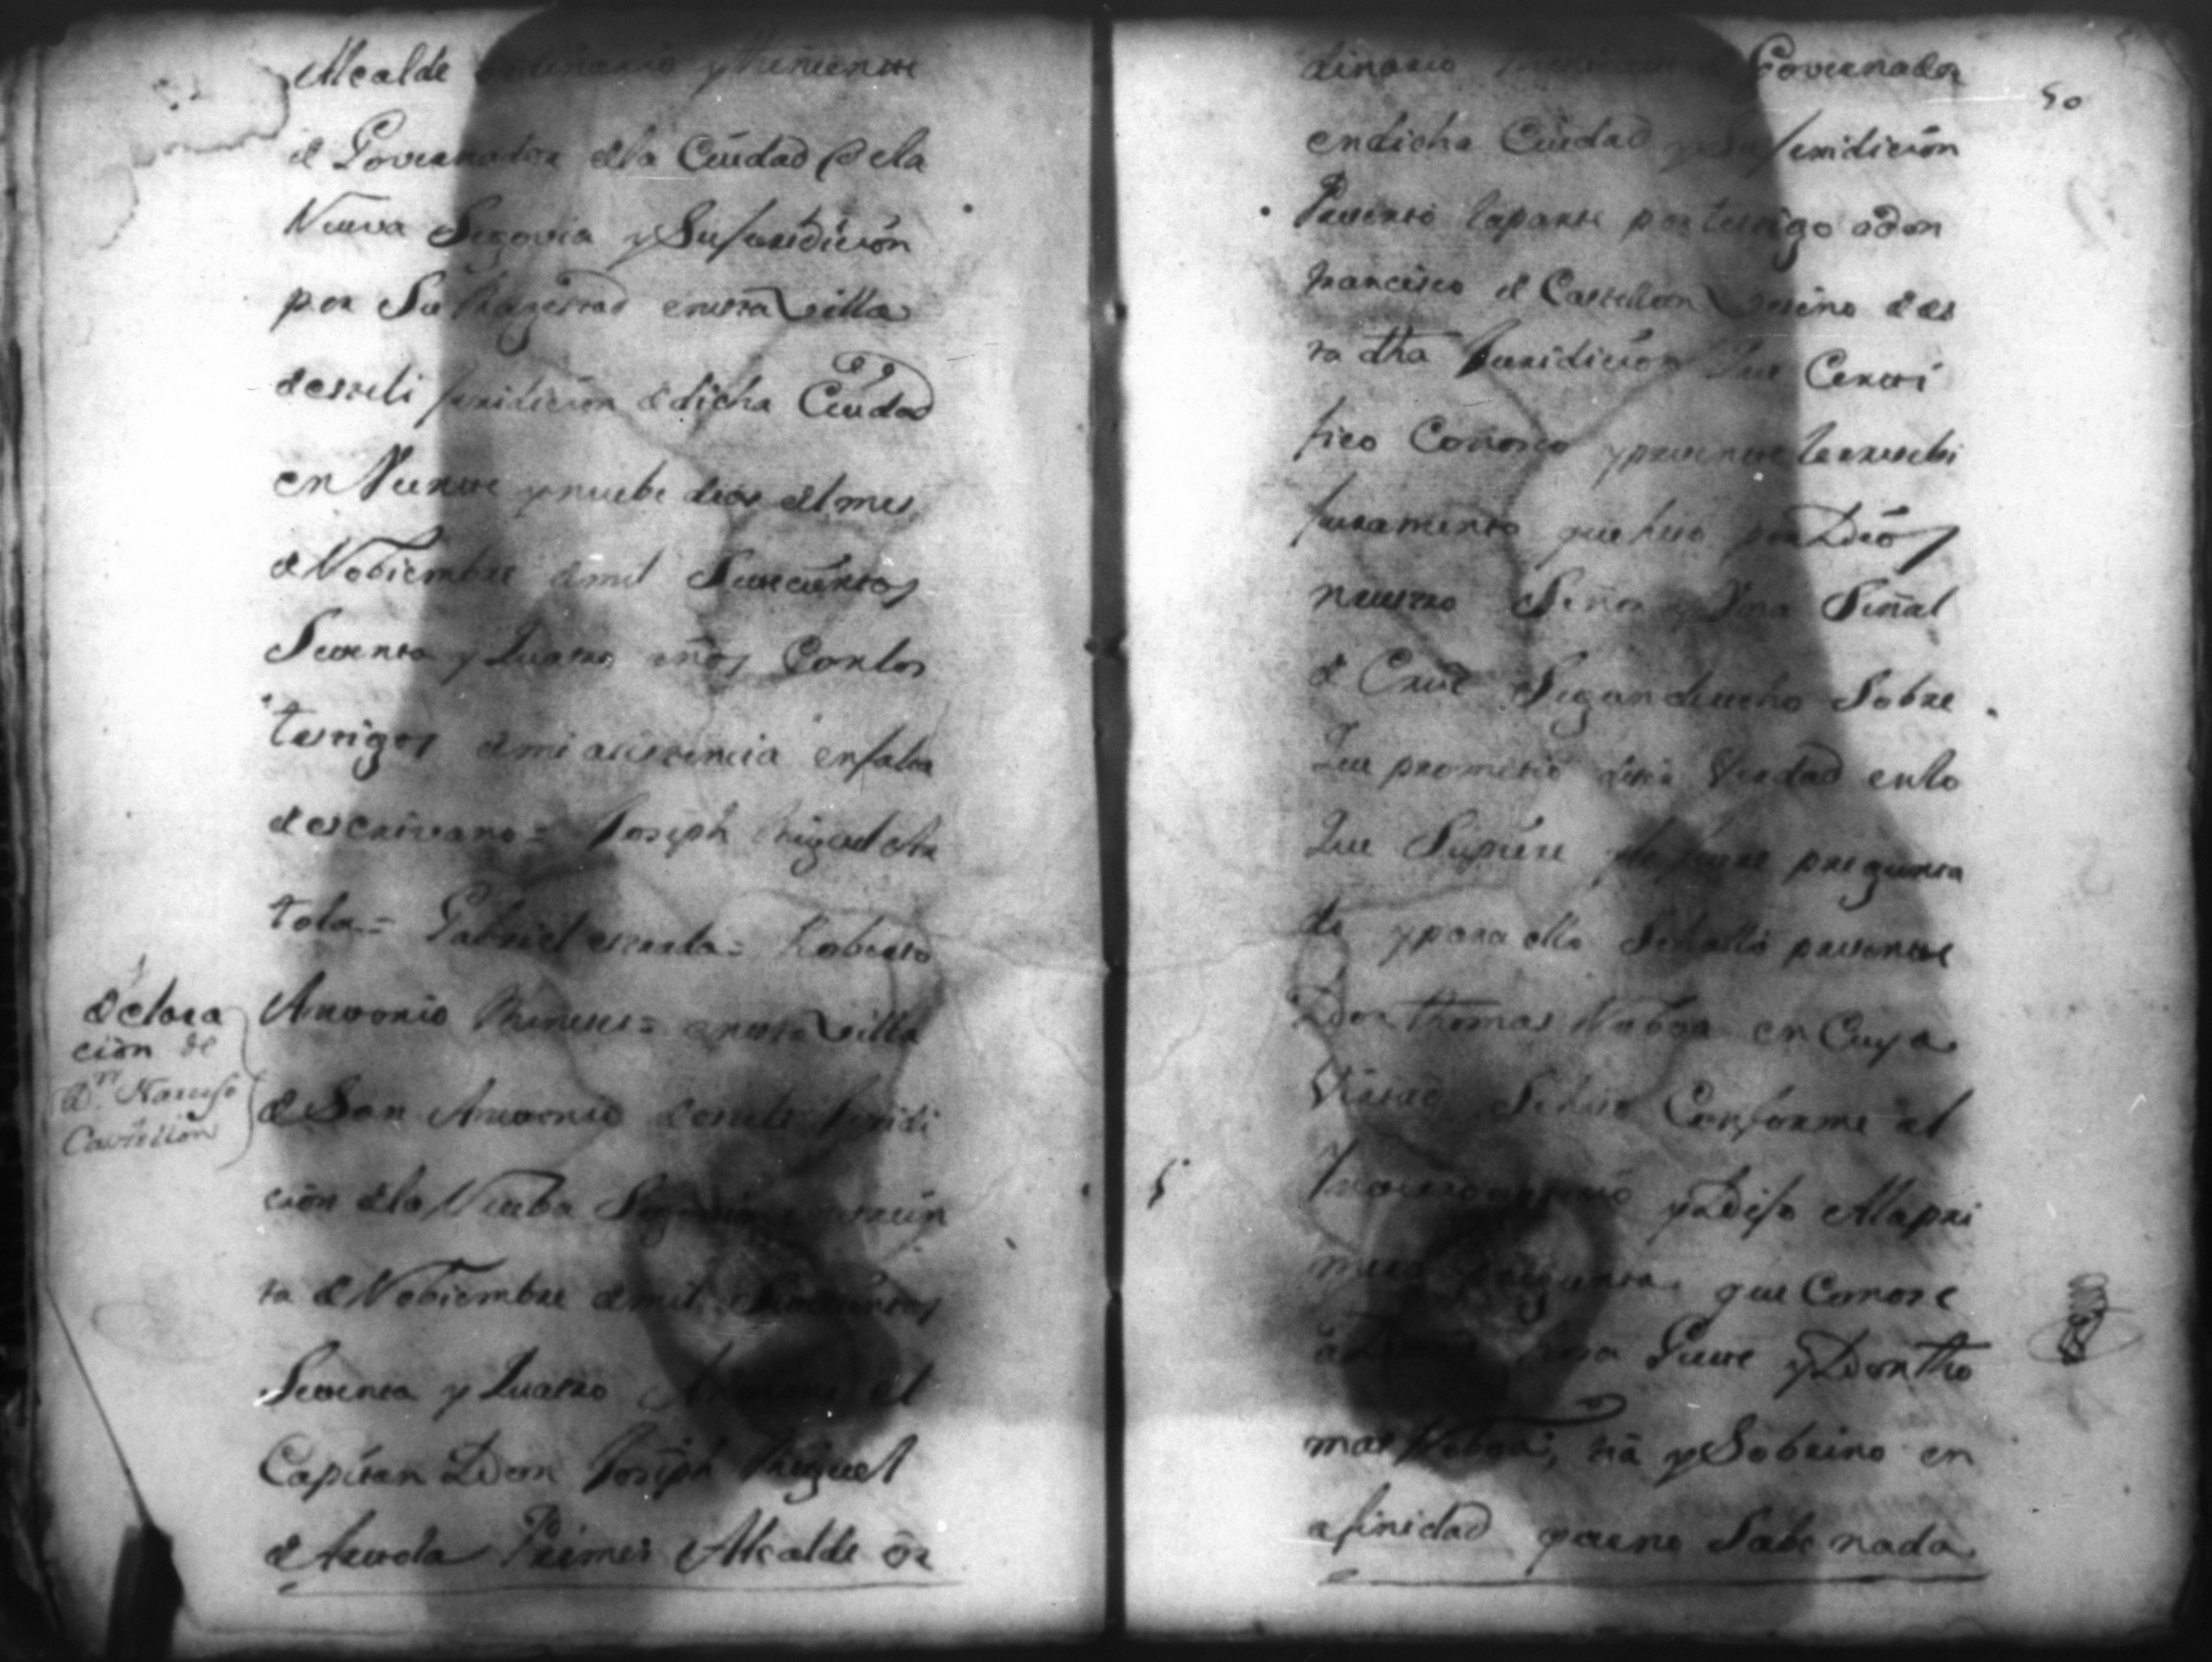 Alcalde ordinario y theniente
de Governador dela Ciudad dela
Nueva Segovia y Su Juridición
por Su Magestad enesta Villa
de esteli juridición de dicha Ciudad
en Veinte y nuebe dias del mes
de Nobiembre de mil Setecientos
Setenta y Quatro años Con los
testigos de mi asistencia en falta
de escrivano = Joseph Miguel de Ar
tola = Gabriel estrada = Roberto
Antonio = en esta Villa
de San Antonio de esteli juridi
ción dela Nueba Segovia en treín
ta de Nobiembre de mil Setecientos
Setenta y Quatro Ante mi el
Capitan Don Joseph Miguel
de Artola Primer Alcalde or
declara
ción de
Dn. Narciso
Castellón
50
dinario theniente de Governador
en dicha Ciudad y Su juridición
Presentó la parte por testigo a don
francisco de Castellon Vesino de es
ta dha Juridición Que Certi
fico Conosco y presente le resebi
juramento que hiso por Dios
nuestro Señor y Una Señal
de Cruz Segun derecho Sobre
Que prometio desir Verdad en lo
Que Supiere y le fuere pregunta
do y para ello Se halló presente
Don thomas Noboa en Cuya
Virtud Conforme al
Interrogatorio y Dijo A la pri
mera pregunta que Conose
y Don tho
mas Noboa, tia y Sobrino en
afinidad que no Sabe nada